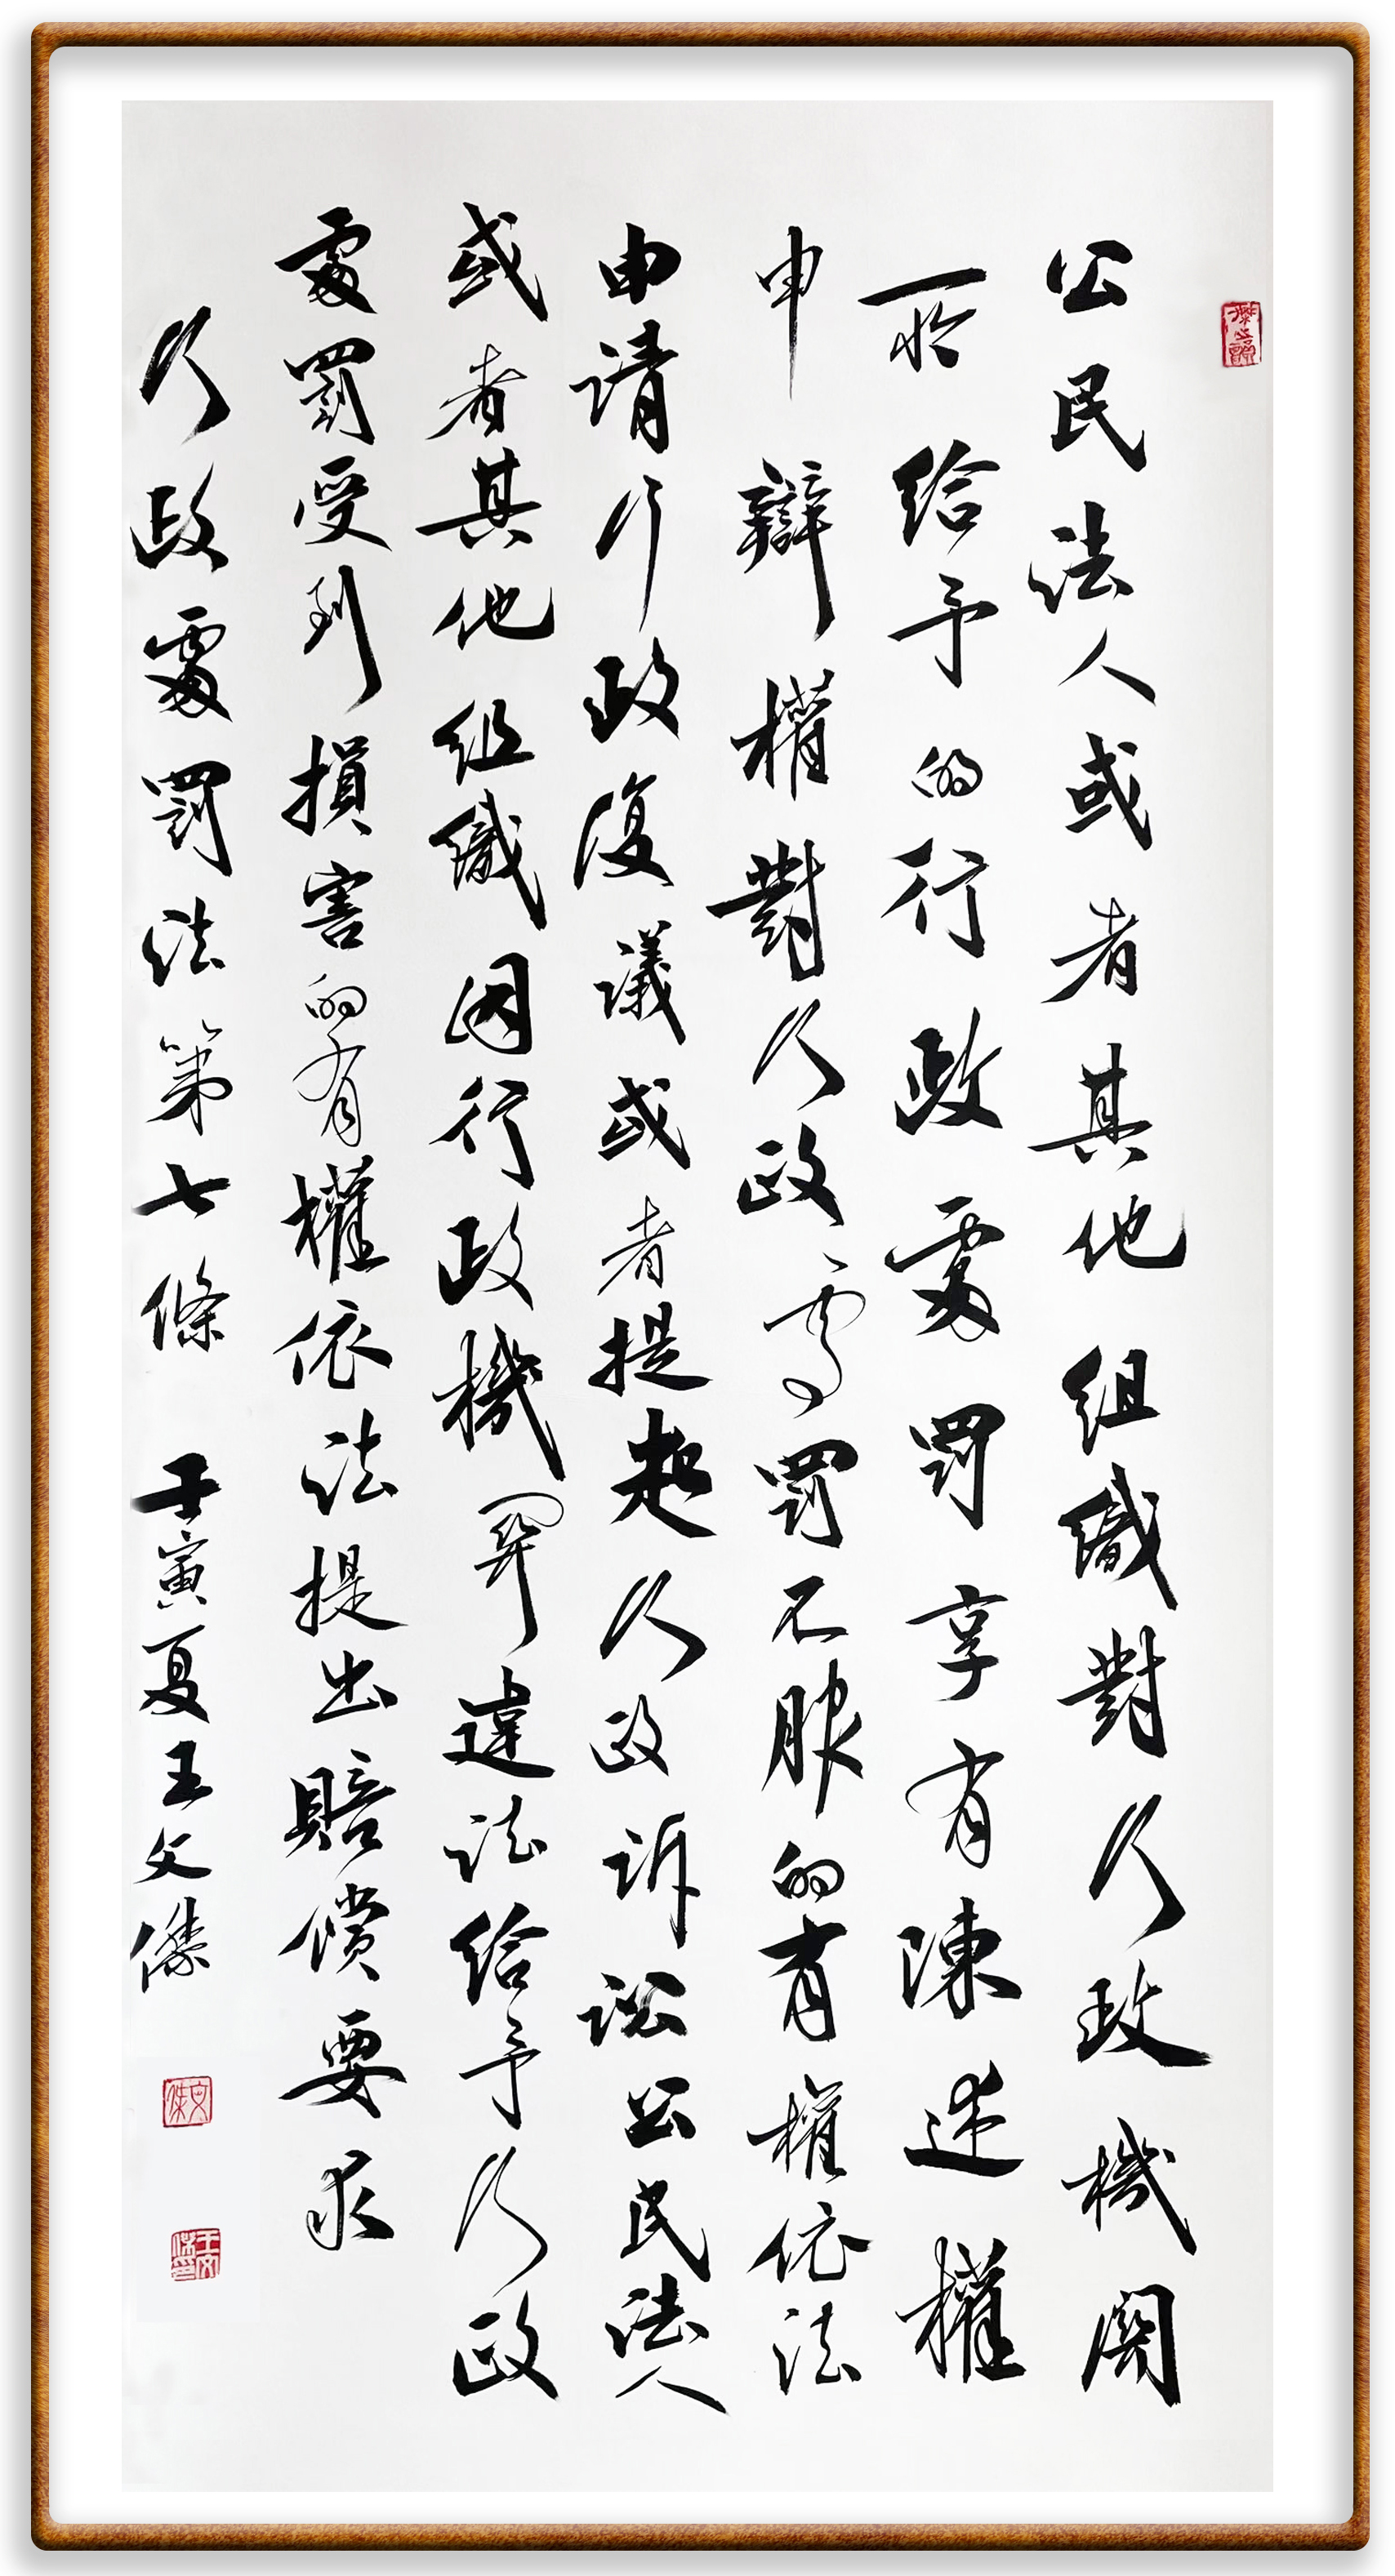 公民法人或者其他組織對行政機關
所給予的行政處罰享有陳述權
申辯權對行政處罰不服的有權依法
申请行政復議或者提起行政诉訟公民法人
或者其他組織因行政機関違法給予行政
處罰受到損害的有權依法提出賠償要求
行政處罰法第七條 壬寅夏王文傑